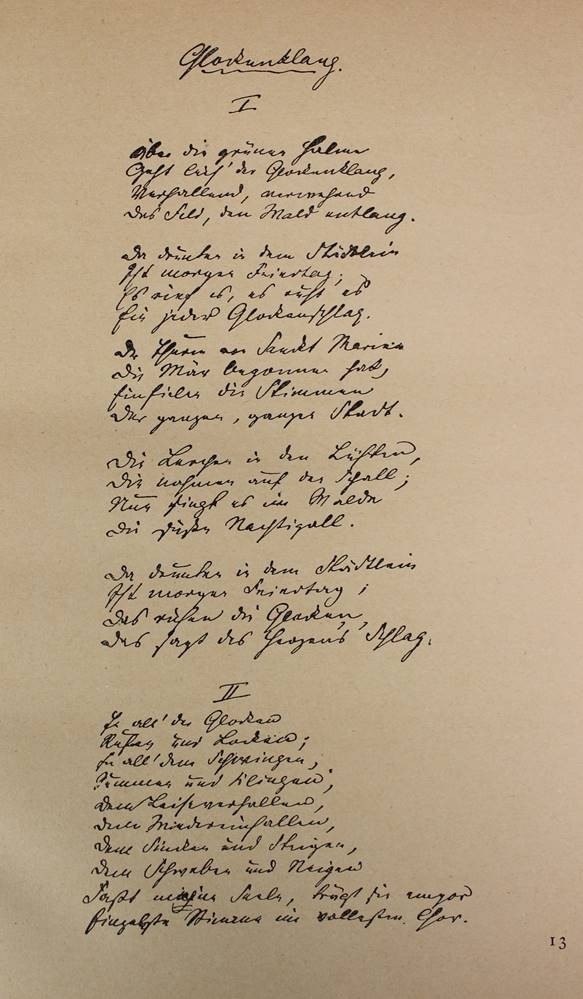 Glockenklang.
I
Über die grünen Halme
Geht leis' der Glockenklang,
Verhallend, verwehend
Das Feld, den Wald entlang.
Da drunten in dem Städtlein
Ist morgen Feiertag;
Es singt es, es ruft es
Ein jeder Glockenschlag.
Der Thurm von Sankt Marien
Die Mär begonnen hat,
Einfielen die Stimmen
Der ganzen, ganzen Stadt.
Die Lerchen in den Lüften,
Die nahmen auf den Schall;
Nun singt es im Walde
Die süße Nachtigall.
Da drunten in dem Städtlein
Ist morgen Feiertag;
Das rufen die Glocken,
Das sagt des Herzens Schlag.
II
In all' der Glocken
Rufen und Locken;
In all' dem Schwingen,
Summen und Klingen,
Dem Leiseverhallen,
Dem Wiedereinfallen,
Dem Sinken und Steigen,
Dem Schweben und Neigen
Faßt meine Seele, trägt sie empor
Einzelste Stimme im vollesten Chor.
13